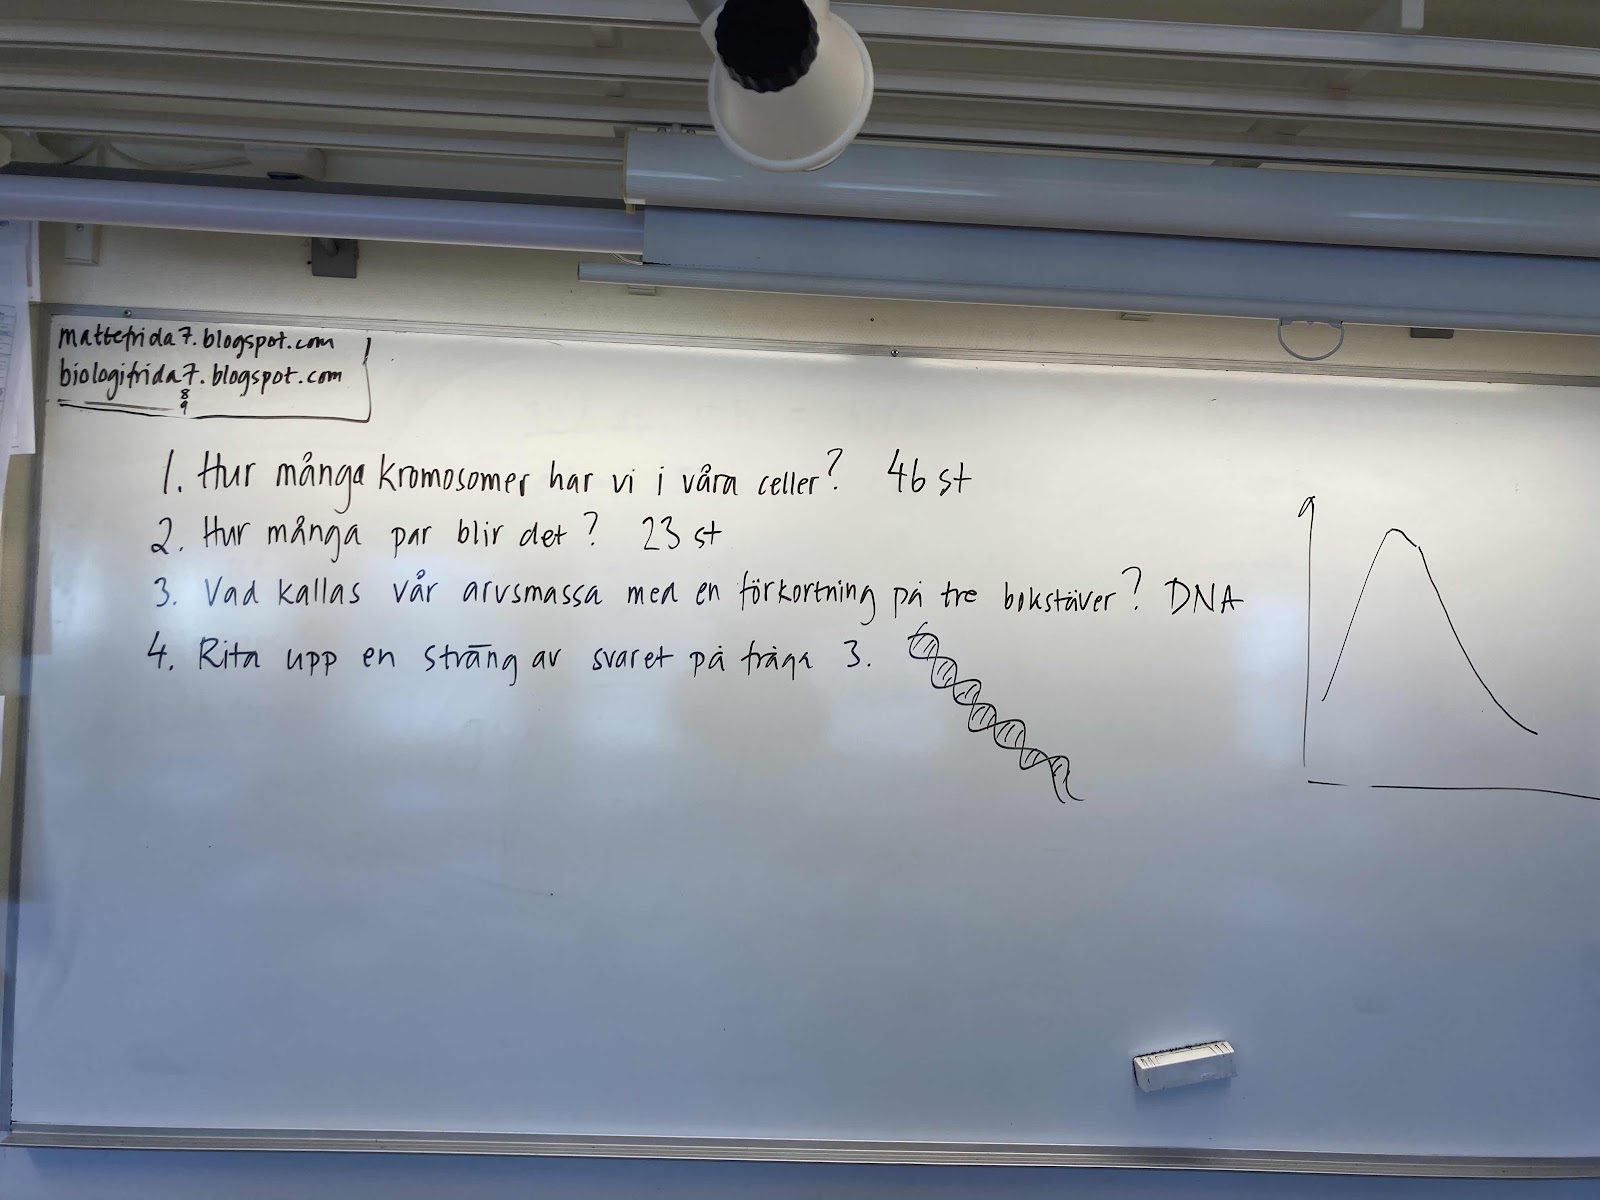 mattefrida7.blogspot.com
biologifrida7.blogspot.com
8
9
1. Hur många kromosomer har vi i våra celler? 46 st
2. Hur många par blir det? 23 st
3. Vad kallas vår arvsmassa med en förkortning på tre bokstäver? DNA
4. Rita upp en sträng av svaret på fråga 3.